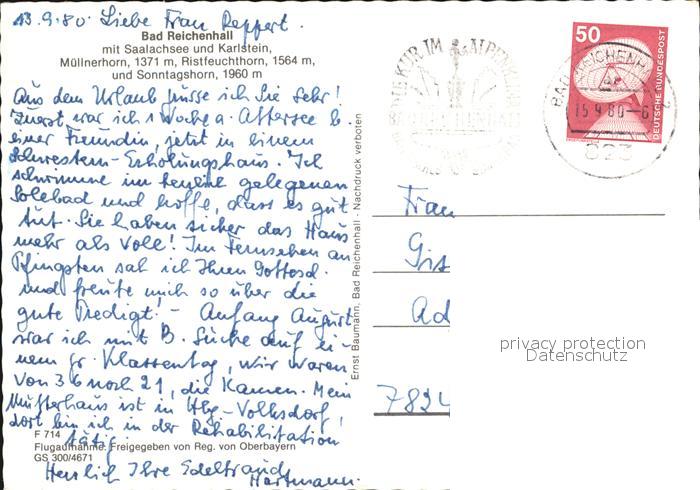 13.9.80. Liebe Frau Reppert.
Bad Reichenhall
mit Saalachsee und Karlstein,
Müllnerhorn, 1371 m, Ristfeuchthorn, 1564 m,
und Sonntagshorn, 1960 m
Aus dem Urlaub grüsse ich Sie sehr!
Zuerst war ich 1 Woche a. Attersee b.
einer Freundin, jetzt in einem
Schwestern-Erholungshaus. Ich
schwimme im gelegenen
Solebad und hoffe, dass es gut
tut. Sie haben sicher das Haus
mehr als voll! Im Fernsehen an
Pfingsten sah ich Ihren Gottesd.
und freute mich so über die
gute Predigt! - Anfang August
war ich mit B. auf ei-
nem gr. Klassentag, wir waren
von 36 noch 21, die kamen. Mein
Mutterhaus ist in Hbg-Volksdorf,
dort bin ich in der Rehabilitation
tätig.
F 714
Flugaufnahme: Freigegeben von Reg. von Oberbayern
GS 300/4671
Herzlich Ihre Edeltraud
Hartmann.
Ernst Baumann, Bad Reichenhall - Nachdruck verboten
KUR IM ALPEN
50
DEUTSCHE BUNDESPOST
BAD REICHENH
15.9.80-8
823
Frau
Gis
Ad
7824
privacy protection
Datenschutz